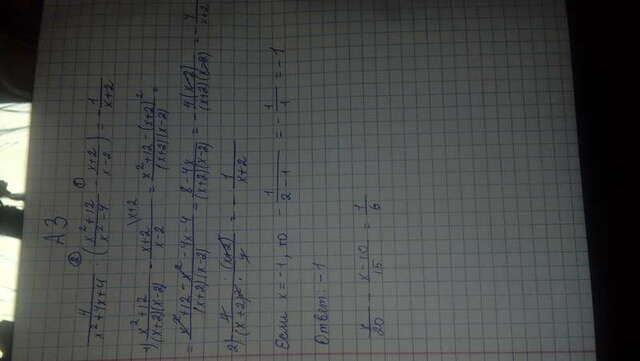 А3
② ①
4/(x²+4x+4) : ((x²+12)/(x²-4) - (x+2)/(x-2)) = -1/(x+2)
1) (x²+12)/((x+2)(x-2)) - (x+2)/(x-2) \x+2 = (x²+12-(x+2)²)/((x+2)(x-2)) =
= (x²+12-x²-4x-4)/((x+2)(x-2)) = (8-4x)/((x+2)(x-2)) = -4(x-2)/((x+2)(x-2)) = -4/(x+2)
2) -4/(x+2)² · (x+2)/4 = -1/(x+2)
Если x=-1, то -1/(2-1) = -1/1 = -1
Ответ: -1
x/20 - (x-10)/15 = 1/6